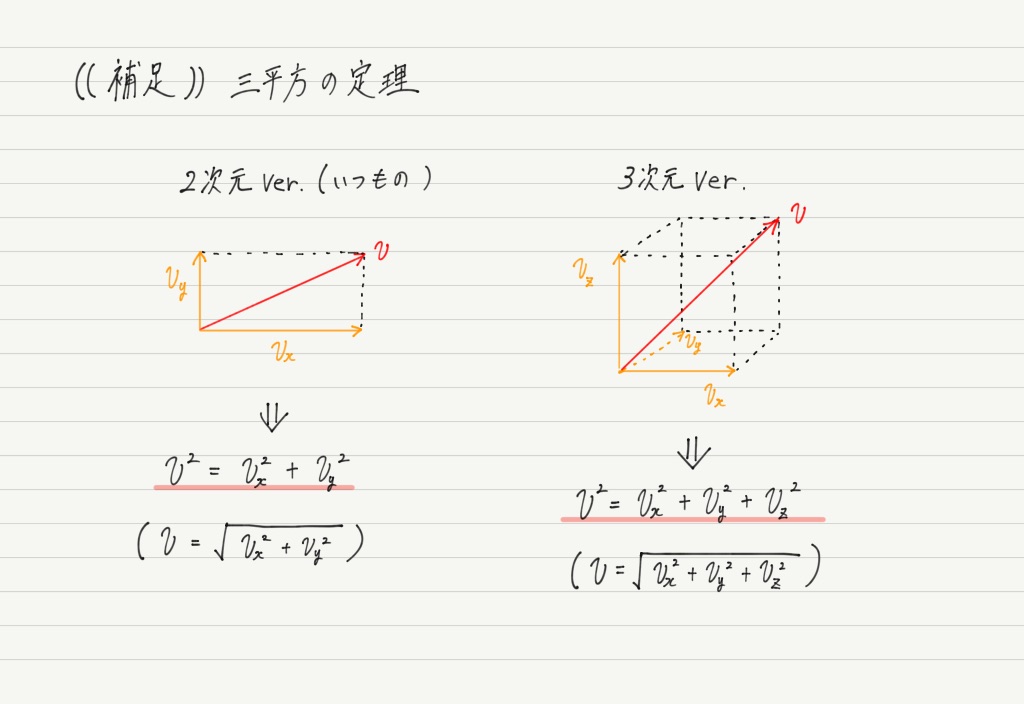 ((補足)) 三平方の定理
2次元 ver. (いつもの)
v
v_y
v_x
⇓
v² = v_x² + v_y²
(v = √(v_x² + v_y²))
3次元 ver.
v
v_z
v_y
v_x
⇓
v² = v_x² + v_y² + v_z²
(v = √(v_x² + v_y² + v_z²))